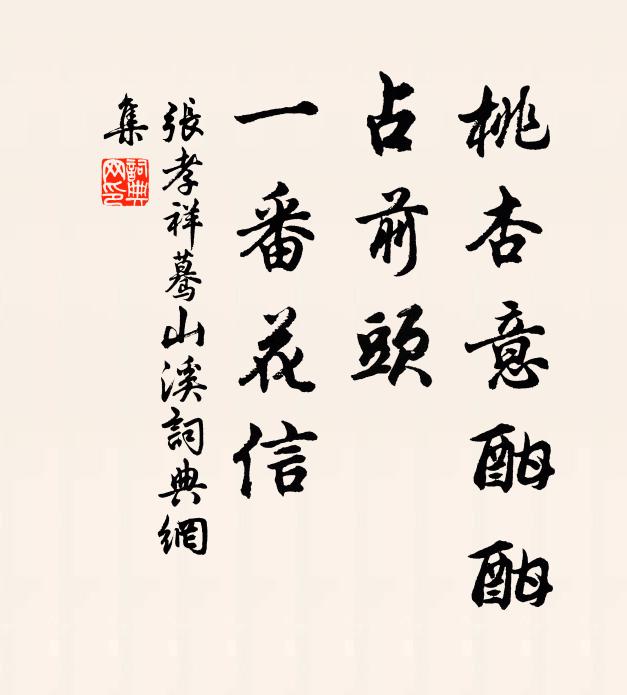 桃杏意酣酣
占前頭
一番花信
張孝祥驀山溪詞典網
集
詞典網印